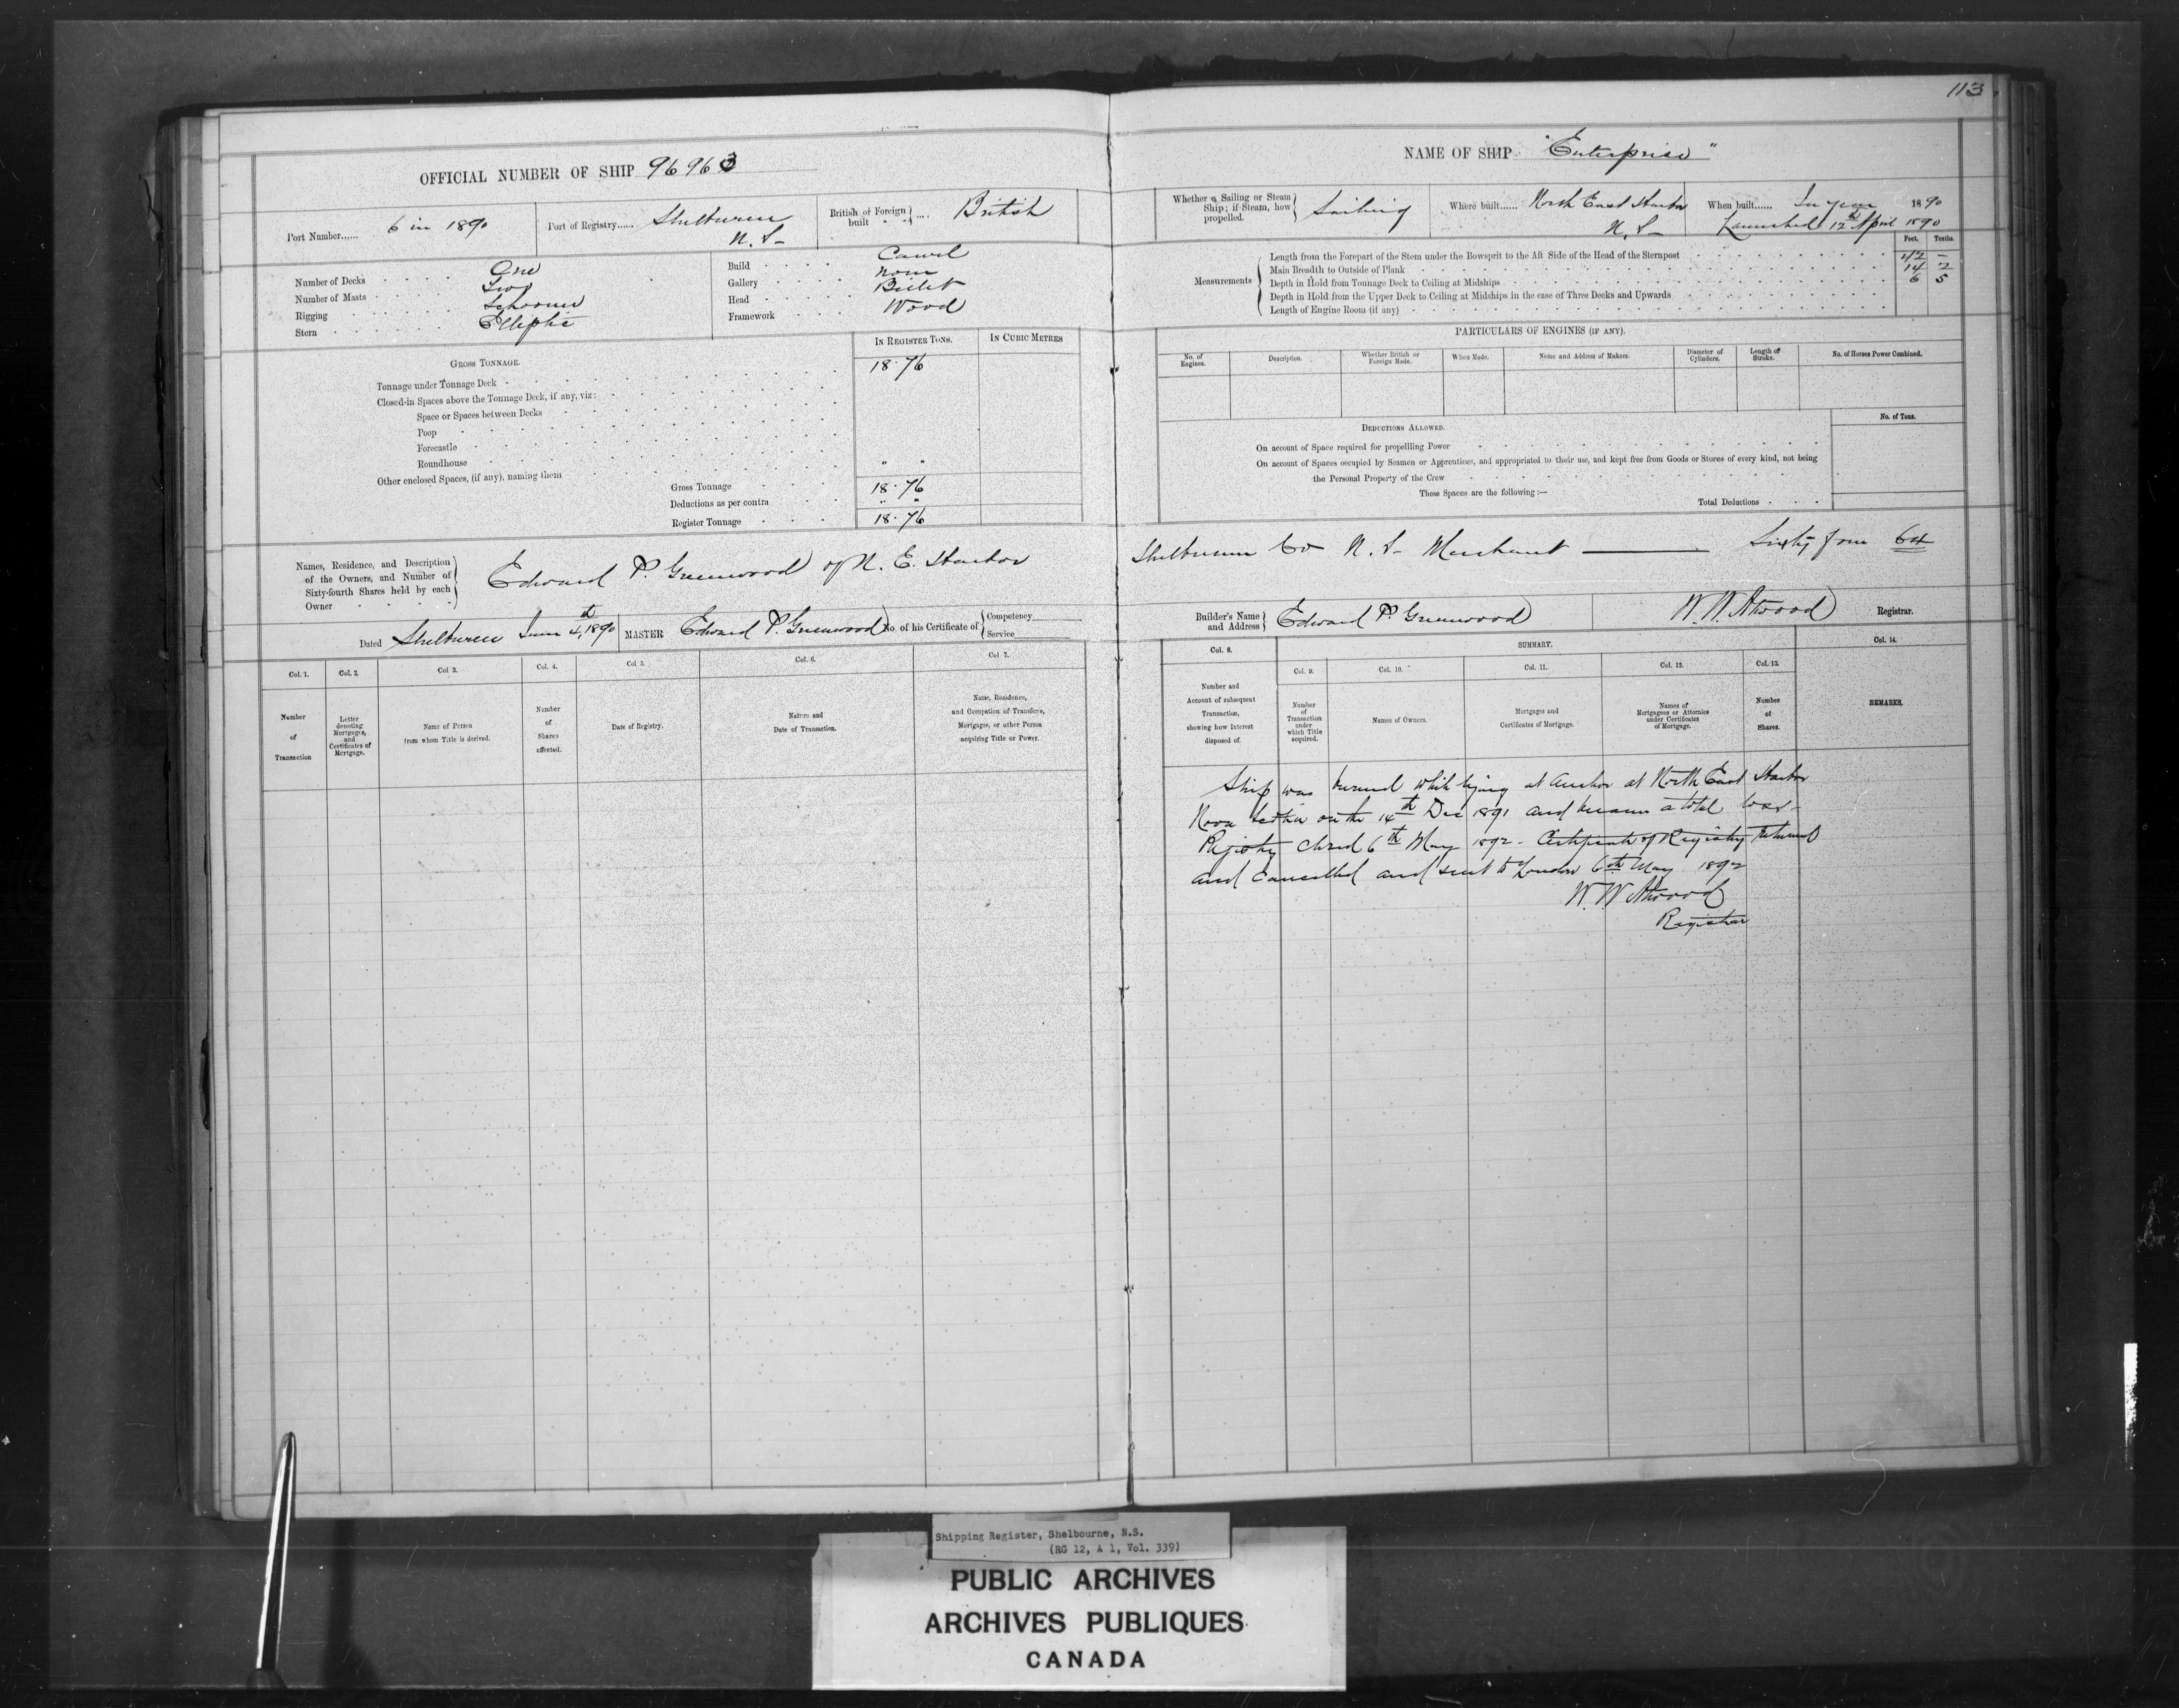 113
OFFICIAL NUMBER OF SHIP 96963
NAME OF SHIP "Enterprise"
Port Number...... 6 in 1890
Port of Registry...... Shelburne N.S-
British or Foreign built " " .... British
Whether a Sailing or Steam Ship; if Steam, how propelled. Sailing
Where built...... North East Harbor N.S-
When built...... In year 1890
Launched 12th April 1890
Number of Decks One
Number of Masts Two
Rigging Schooner
Stern Elliptic
Build Carvel
Gallery none
Head Billet
Framework Wood
Measurements
Feet. Tenths.
Length from the Forepart of the Stem under the Bowsprit to the Aft Side of the Head of the Sternpost 42 –
Main Breadth to Outside of Plank 14 2
Depth in Hold from Tonnage Deck to Ceiling at Midships 6 5
Depth in Hold from the Upper Deck to Ceiling at Midships in the case of Three Decks and Upwards
Length of Engine Room (if any)
GROSS TONNAGE.
IN REGISTER TONS.
IN CUBIC METRES
Tonnage under Tonnage Deck - 18.76
Closed-in Spaces above the Tonnage Deck, if any, viz:
Space or Spaces between Decks
Poop
Forecastle
Roundhouse " "
Other enclosed Spaces, (if any), naming them
Gross Tonnage 18.76
Deductions as per contra " "
Register Tonnage 18.76
PARTICULARS OF ENGINES (IF ANY).
No. of Engines.
Description.
Whether British or Foreign Made.
When Made.
Name and Address of Makers.
Diameter of Cylinders.
Length of Stroke.
No. of Horses Power Combined.
DEDUCTIONS ALLOWED.
No. of Tons.
On account of Space required for propellling Power
On account of Spaces occupied by Seamen or Apprentices, and appropriated to their use, and kept free from Goods or Stores of every kind, not being
the Personal Property of the Crew
These Spaces are the following:—
Total Deductions
Names, Residence, and Description
of the Owners, and Number of
Sixty-fourth Shares held by each
Owner
Edward P. Greenwood of N. E. Harbor Shelburne Co N.S- Merchant —— Sixty four 64
Dated Shelburne June 4th, 1890
MASTER Edward P. Greenwood
No. of his Certificate of Competency Service
Builder's Name and Address Edward P. Greenwood
W. W. Atwood Registrar.
Col. 1.
Col. 2.
Col 3.
Col. 4.
Col 5.
Col. 6.
Col 7.
Number of Transaction
Letter denoting Mortgages, and Certificates of Mortgage.
Name of Person from whom Title is derived.
Number of Shares affected.
Date of Registry.
Nature and Date of Transaction.
Name, Residence, and Occupation of Transferee, Mortgagee, or other Person acquiring Title or Power.
Col. 8.
SUMMARY.
Col. 14.
Col. 9.
Col. 10.
Col. 11.
Col. 12.
Col. 13.
Number and Account of subsequent Transaction, showing how Interest disposed of.
Number of Transaction under which Title acquired.
Names of Owners.
Mortgages and Certificates of Mortgage.
Names of Mortgagees or Attornies under Certificates of Mortgage.
Number of Shares.
REMARKS.
Ship was burned while lying at Anchor at North East Harbor
Nova Scotia on the 14th Dec 1891 and became a total loss-
Registry closed 6th May 1892- Certificate of Registry returned
and Cancelled and sent to London 6th May 1892
W. W. Atwood
Registrar
Shipping Register, Shelbourne, N.S.
(RG 12, A 1, Vol. 339)
PUBLIC ARCHIVES
ARCHIVES PUBLIQUES
CANADA